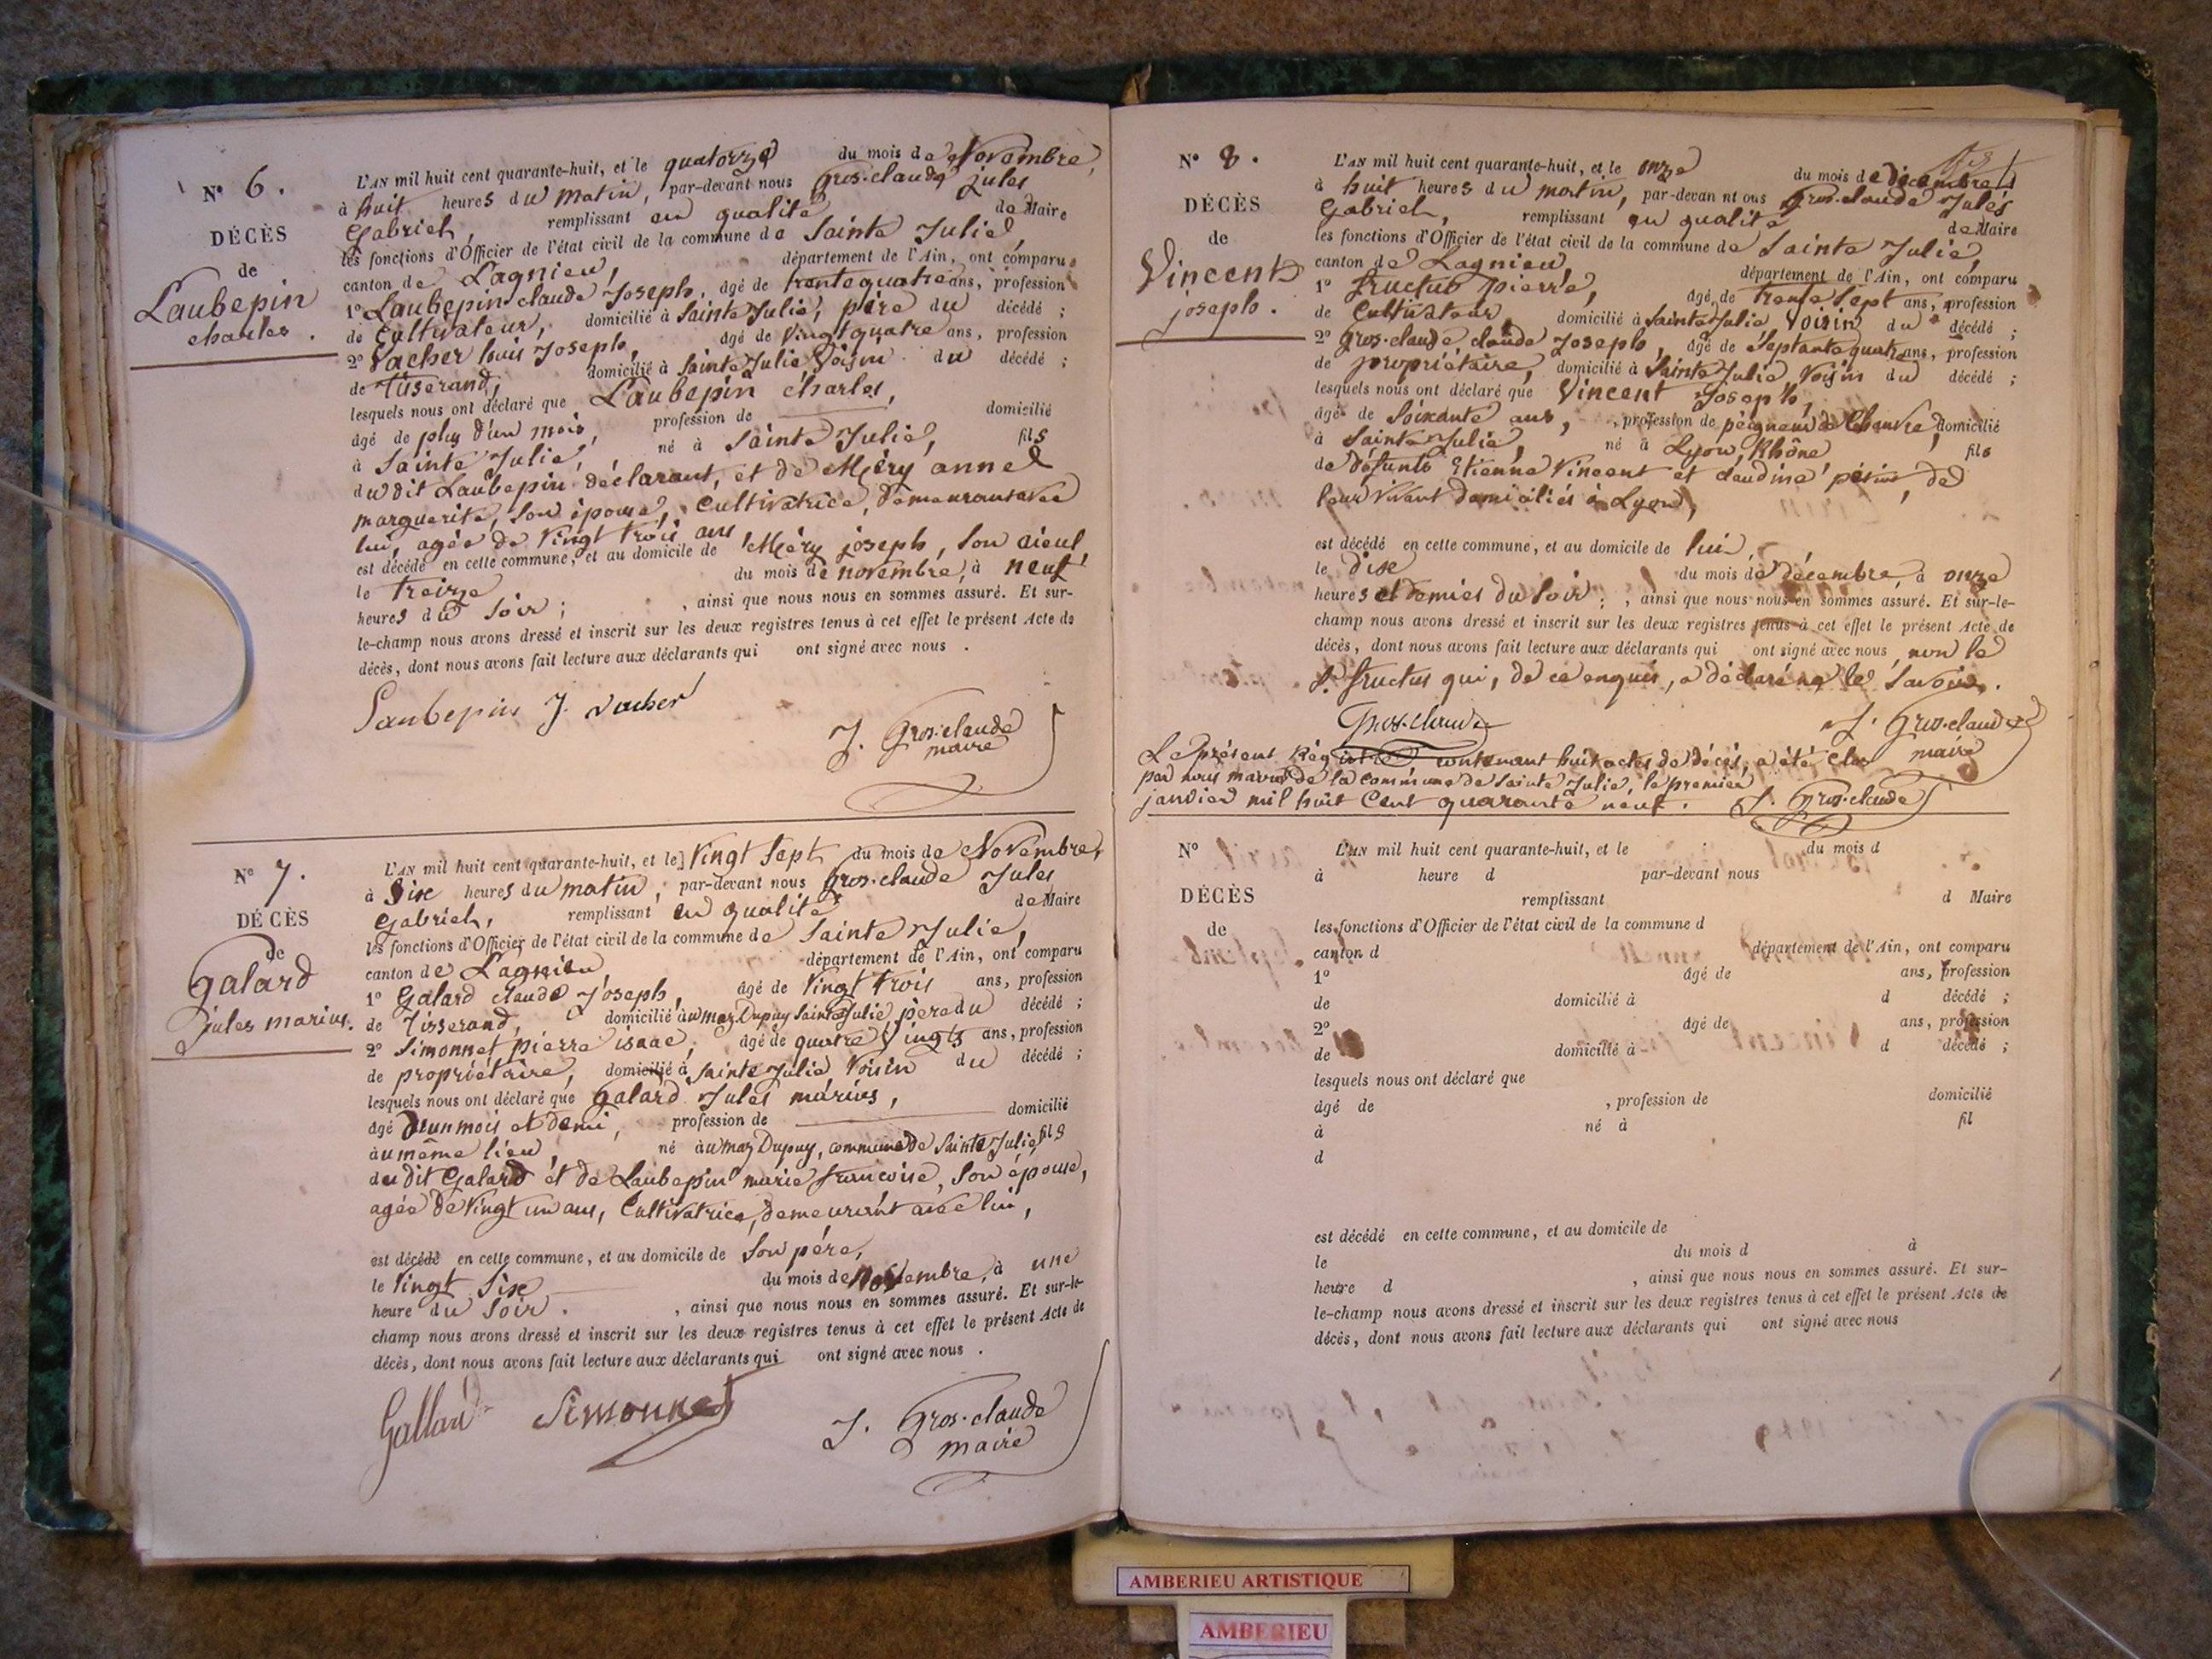 N° 6.
DÉCÈS
de
Laubepin
charles.
L'AN mil huit cent quarante-huit, et le quatorze du mois de Novembre,
à huit heures du matin, par-devant nous Gros-claude jules
Gabriel, remplissant en qualité de Maire
les fonctions d'Officier de l'état civil de la commune de Sainte Julie,
canton de Lagnieu, département de l'Ain, ont comparu
1° Laubepin claude Joseph, âgé de trente quatre ans, profession
de Cultivateur, domicilié à Sainte Julie, père du décédé ;
2° Vacher louis Joseph, âgé de Vingt quatre ans, profession
de Tisserand, domicilié à Sainte Julie, Voisin du décédé ;
lesquels nous ont déclaré que Laubepin charles,
âgé de plus d'un mois, profession de domicilié
à Sainte Julie, né à Sainte Julie, fils
du dit Laubepin déclarant, et de Méry anne
marguerite, son épouse, Cultivatrice, demeurant avec
lui, agée de Vingt trois ans,
est décédé en cette commune, et au domicile de Méry joseph, son aieul,
le treize du mois de novembre, à neuf
heures du Soir ; , ainsi que nous nous en sommes assuré. Et sur-
le-champ nous avons dressé et inscrit sur les deux registres tenus à cet effet le présent Acte de
décès, dont nous avons fait lecture aux déclarants qui ont signé avec nous .
Laubepin J. vacher
J. Gros-claude
maire
N° 7.
DÉCÈS
de
Galard
jules marius.
L'AN mil huit cent quarante-huit, et le Vingt Sept du mois de Novembre,
à Six heures du matin, par-devant nous Gros-claude Jules
Gabriel, remplissant en qualité de Maire
les fonctions d'Officier de l'état civil de la commune de Sainte Julie,
canton de Lagnieu, département de l'Ain, ont comparu
1° Galard claude Joseph, âgé de Vingt trois ans, profession
de Tisserand, domicilié au maz Dupuy Sainte Julie, père du décédé ;
2° Simonnet pierre isaac, âgé de quatre Vingts ans, profession
de propriétaire, domicilié à Sainte Julie Voisin du décédé ;
lesquels nous ont déclaré que Galard Jules márius,
âgé d'un mois et demi, profession de domicilié
au même lieu, né au maz Dupuy, commune de Sainte Julie, fils
du dit Galard et de Laubepin marie francoise, son épouse,
agée de Vingt un ans, Cultivatrice, demeurant avec lui,
est décédé en cette commune, et au domicile de Son père,
le Vingt Six du mois de Novembre, à une
heure du Soir. , ainsi que nous nous en sommes assuré. Et sur-le-
champ nous avons dressé et inscrit sur les deux registres tenus à cet effet le présent Acte de
décès, dont nous avons fait lecture aux déclarants qui ont signé avec nous .
Gallard Simonnet
J. Gros-claude
maire
N° 8.
DÉCÈS
de
Vincent
joseph.
L'AN mil huit cent quarante-huit, et le onze du mois de décembre,
à huit heures du matin, par-devan nt ous Gros-claude Jules
Gabriel, remplissant en qualité de Maire
les fonctions d'Officier de l'état civil de la commune de Sainte Julie,
canton de Lagnieu, département de l'Ain, ont comparu
1° fructus pierre, âgé de trente Sept ans, profession
de Cultivateur, domicilié à Sainte Julie, Voisin du décédé ;
2° Gros-claude claude Joseph, âgé de Septante quatre ans, profession
de propriétaire, domicilié à Sainte Julie Voisin du décédé ;
lesquels nous ont déclaré que Vincent Joseph,
âgé de Soixante ans, , profession de peigneur de Chanvre, domicilié
à Sainte Julie, né à Lyon, Rhône, fils
de défunts Etienne Vincent et claudine, de
leur Vivant domiciliés à Lyon,
est décédé en cette commune, et au domicile de lui,
le dix du mois de décembre, à onze
heures et demies du Soir ; , ainsi que nous nous en sommes assuré. Et sur-le-
champ nous avons dressé et inscrit sur les deux registres tenus à cet effet le présent Acte de
décès, dont nous avons fait lecture aux déclarants qui ont signé avec nous, non le
S. fructus qui, de ce enquis, a déclaré ne le Savoir.
Gros-claude
J. Gros-claude
maire
Le présent Régistre contenant huit actes de décès, a été Clos
par nous maire de la Commune de Sainte Julie, le premier
janvier mil huit Cent quarante neuf. J. Gros-claude
N°
DÉCÈS
de
L'AN mil huit cent quarante-huit, et le du mois d
à heure d par-devant nous
remplissant d Maire
les fonctions d'Officier de l'état civil de la commune d
canton d département de l'Ain, ont comparu
1° âgé de ans, profession
de domicilié à d décédé ;
2° âgé de ans, profession
de domicilié à d décédé ;
lesquels nous ont déclaré que
âgé de , profession de domicilié
à né à fil
d
est décédé en cette commune, et au domicile de
le du mois d à
heure d , ainsi que nous nous en sommes assuré. Et sur-
le-champ nous avons dressé et inscrit sur les deux registres tenus à cet effet le présent Acte de
décès, dont nous avons fait lecture aux déclarants qui ont signé avec nous
AMBERIEU ARTISTIQUE
AMBERIEU